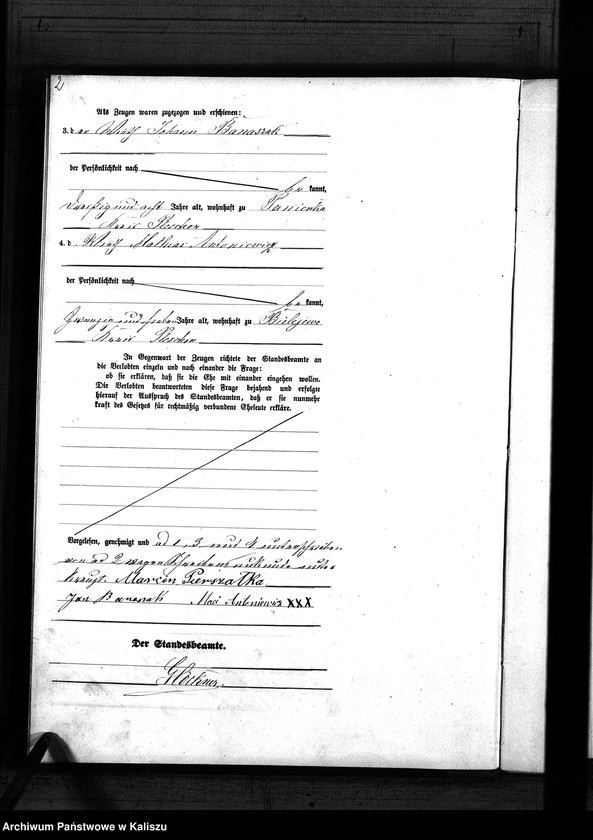 2
Als Zeugen waren zugezogen und erschienen:
3. der Wirth Johann Banaszak
der Persönlichkeit nach
be kannt,
Dreißig und acht Jahre alt, wohnhaft zu
Kreis Pleschen
4. d. Wirth Mathias Antoniewicz
der Persönlichkeit nach
be kannt,
Zwanzig und sieben Jahre alt, wohnhaft zu Bielejewo
Kreis Pleschen
In Gegenwart der Zeugen richtete der Standesbeamte an
die Verlobten einzeln und nach einander die Frage:
ob sie erklären, daß sie die Ehe mit einander eingehen wollen.
Die Verlobten beantworteten diese Frage bejahend und erfolgte
hierauf der Ausspruch des Standesbeamten, daß er sie nunmehr
kraft des Gesetzes für rechtmäßig verbundene Eheleute erkläre.
Vorgelesen, genehmigt und ad 1, 3 und 4 unterschrieben
von ad 2 wegen Schreibensunkunde unter
kreuzt. Marcin Pierszałka
Jan Banaszak Maci Antoniewicz XXX
Der Standesbeamte.
Archiwum Państwowe w Kaliszu